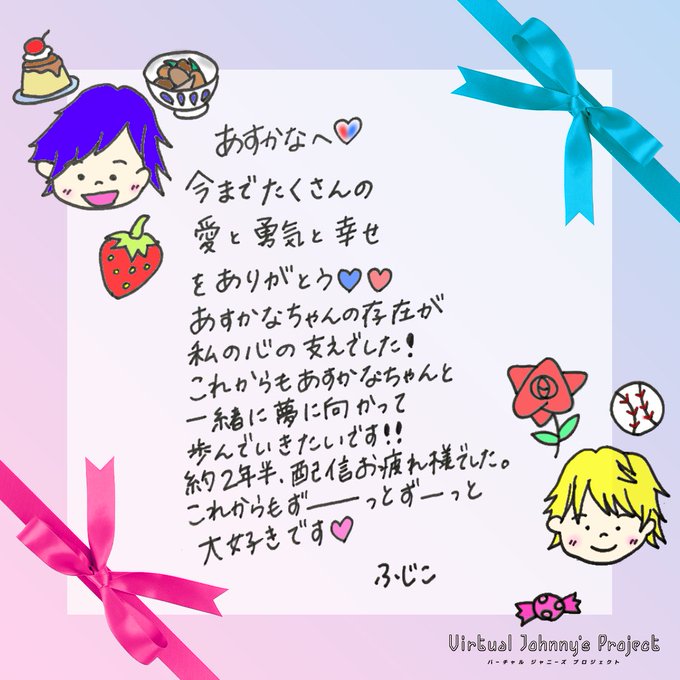 あすかなへ
今までたくさんの
愛と勇気と幸せ
をありがとう
あすかなちゃんの存在が
私の心の支えでした!
これからもあすかなちゃんと
一緒に夢に向かって
歩んでいきたいです!!
約2年半、配信お疲れ様でした。
これからもずーーっとずーっと
大好きです
ふじこ
Virtual Johnny's Project
バーチャル ジャニーズ プロジェクト